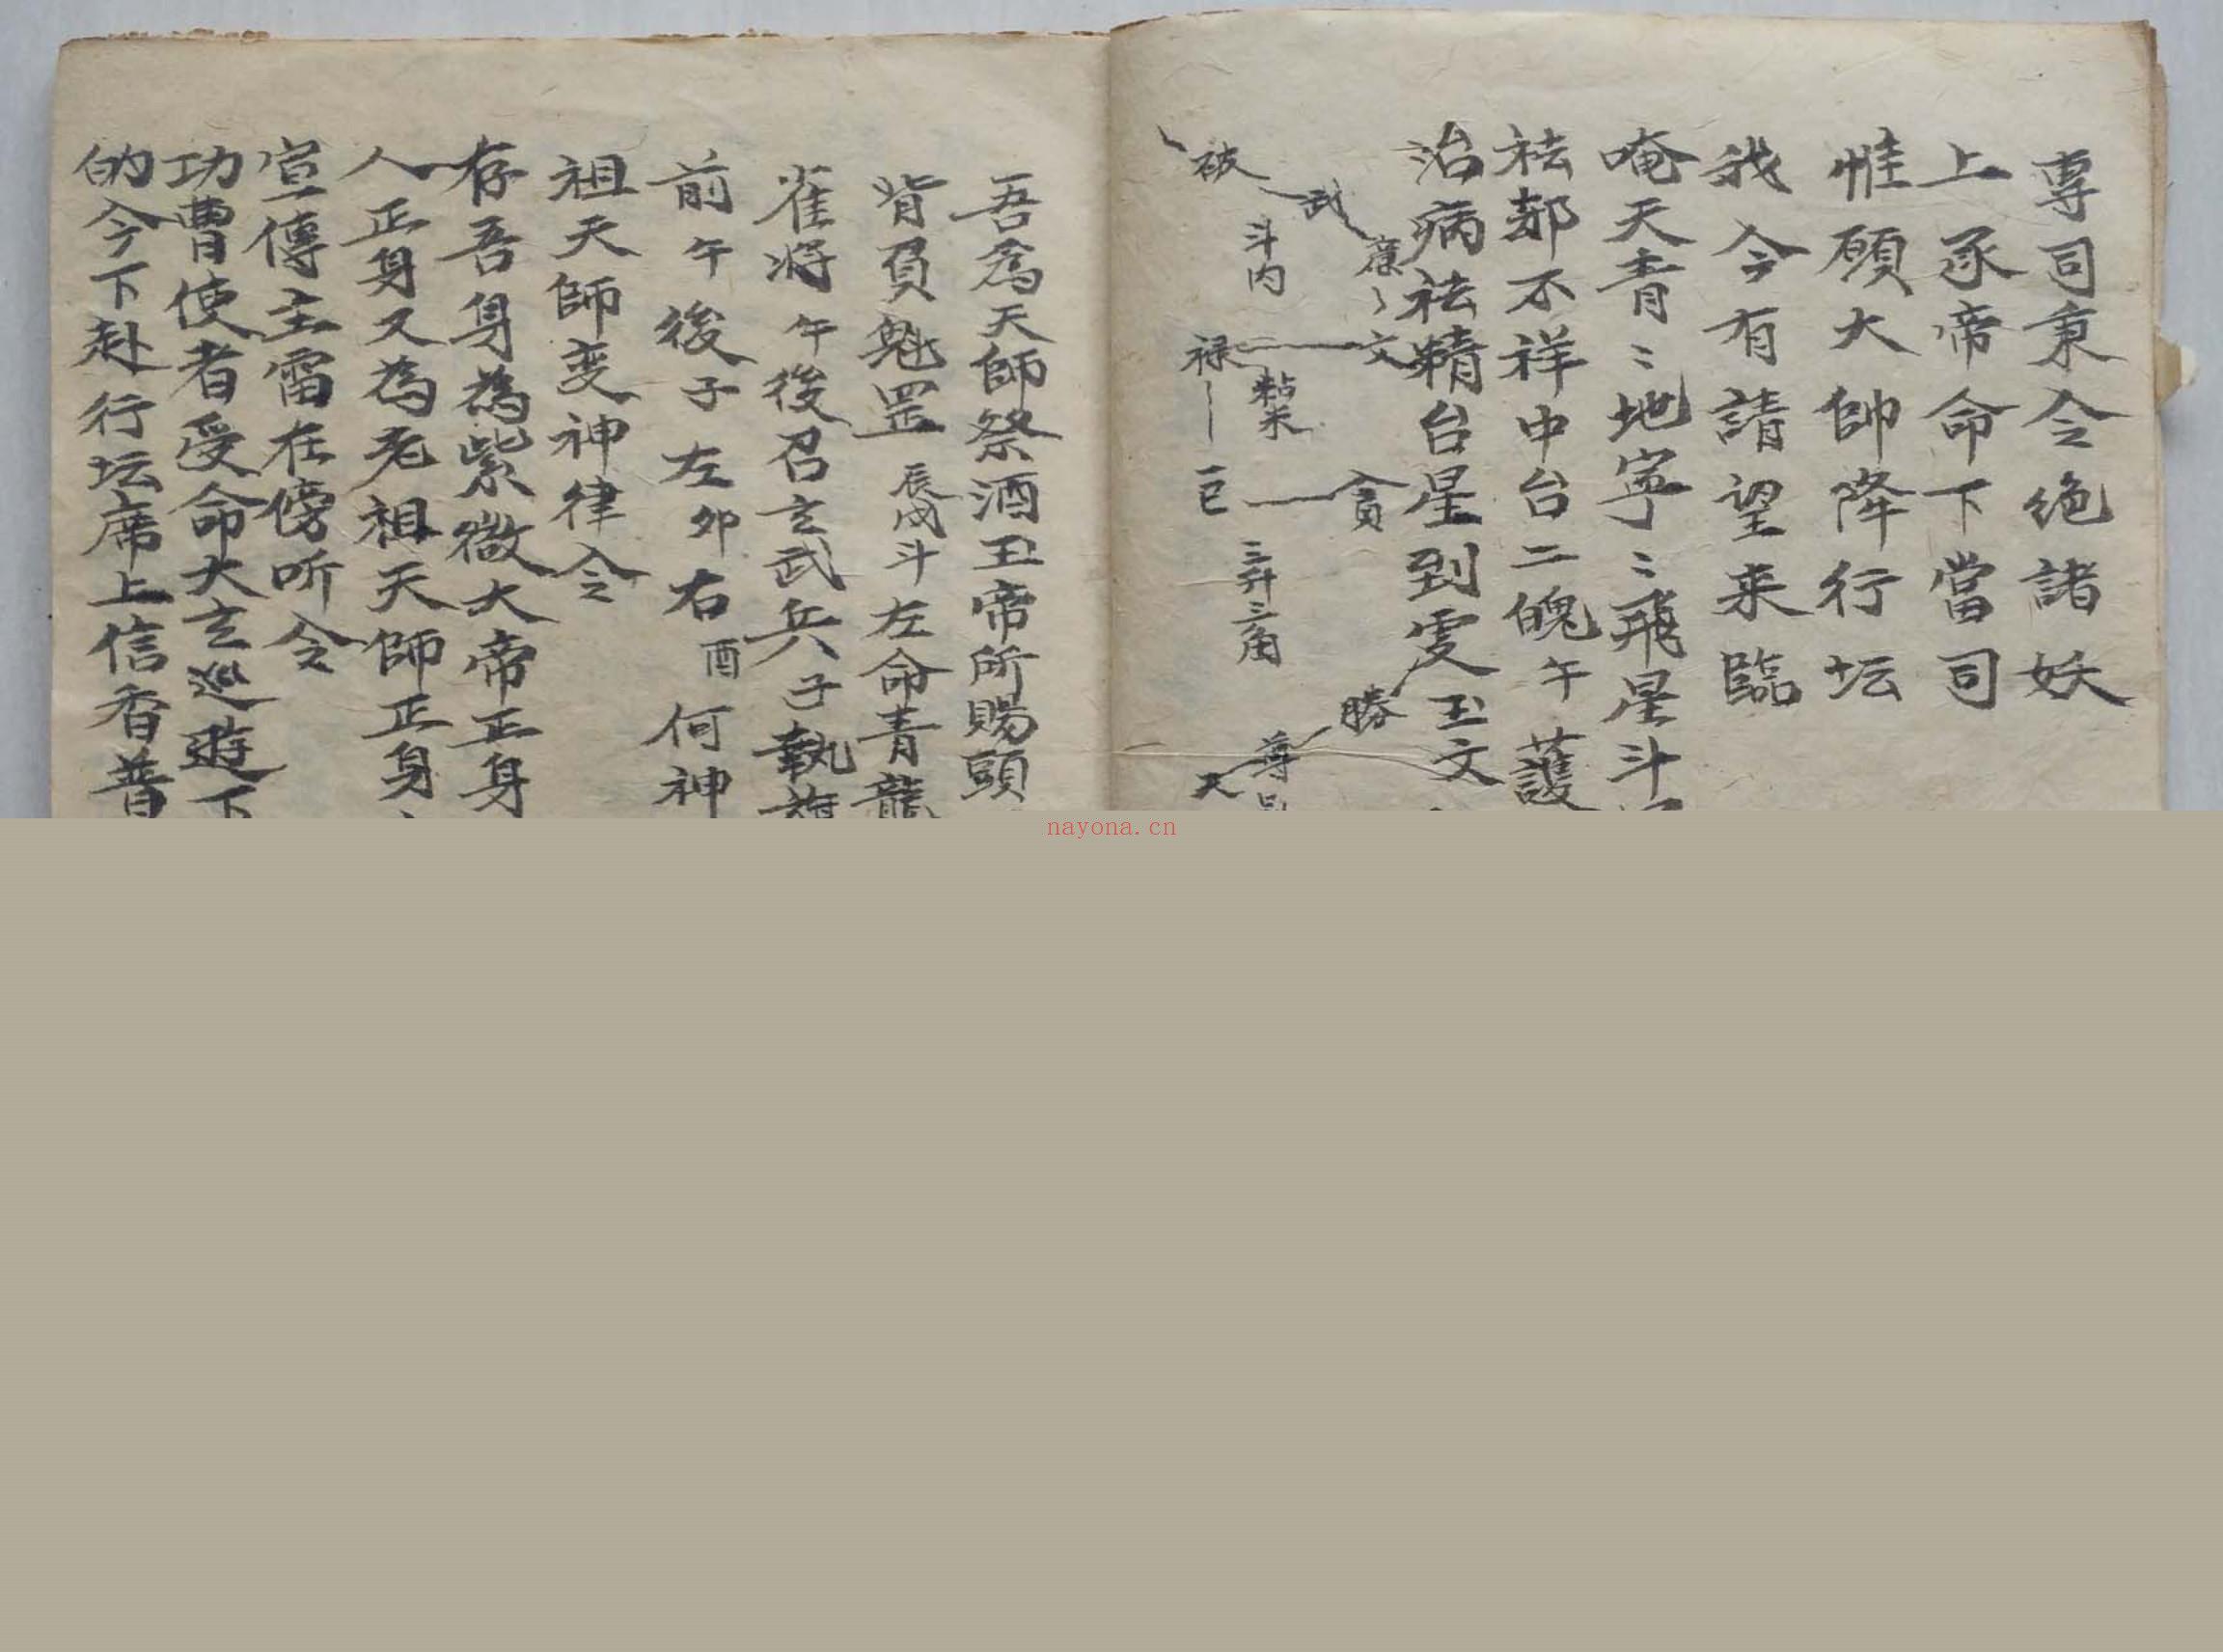 專司秉令絶諸妖
上承帝命下當司
惟願大帥降行坛
我今有請望来臨
唵天青〻地寕〻飛星斗
袪邪不祥中台二魄午護
治病袪精台星到处玉文
破
武
廉
文
禄
巨
貪
斗内
粘米
三升三角
勝
尊
天
吾為天師祭酒五帝所賜頭
背負魁罡辰戌斗左命青龍
雀将午後召玄武兵子執旗
前午後子左卯右酉何神
祖天師变神律令
存吾身為紫微大帝正身
人正身又為老祖天師正身
宣傳主雷在傍听令
功曹使者受命大玄巡遊下
的今下赴行坛席上信香普
nayona.cn